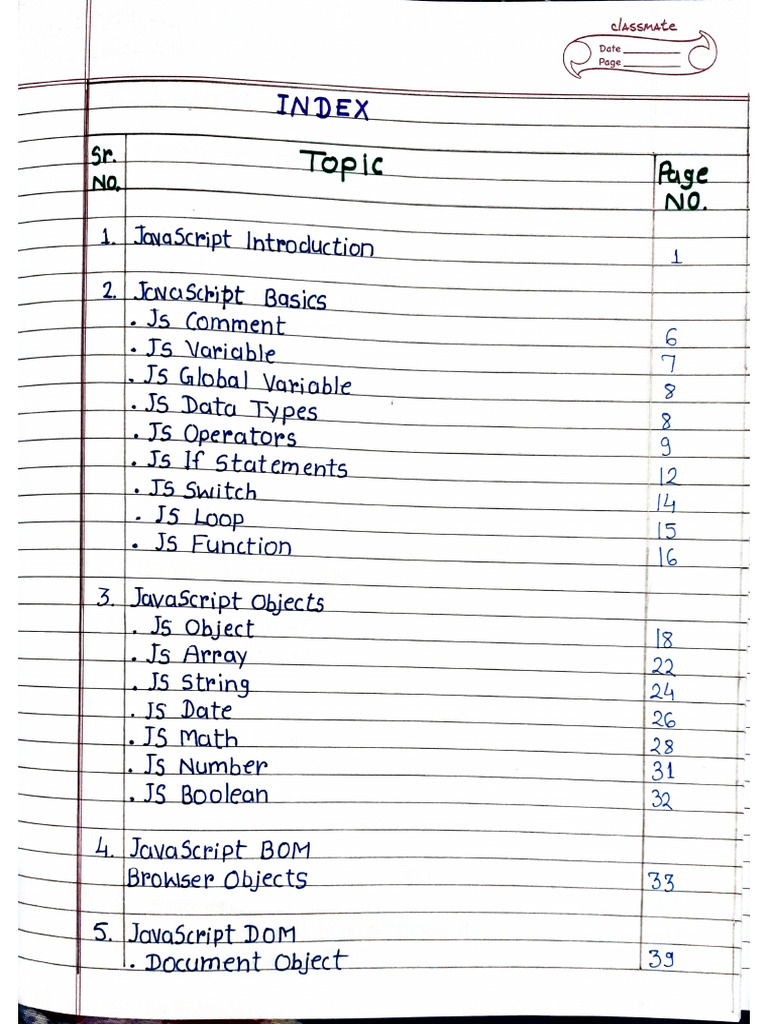 classmate
Date
Page
INDEX
Sr. No. Topic Page No.
1. JavaScript Introduction 1
2. JavaScript Basics
. Js Comment 6
. Js Variable 7
. Js Global Variable 8
. Js Data Types 8
. Js Operators 9
. Js If Statements 12
. JS Switch 14
. JS Loop 15
. Js Function 16
3. JavaScript Objects
. Js Object 18
. Js Array 22
. JS String 24
. JS Date 26
. JS Math 28
. Js Number 31
. JS Boolean 32
4. JavaScript BOM
Browser Objects 33
5. JavaScript DOM
. Document Object 39